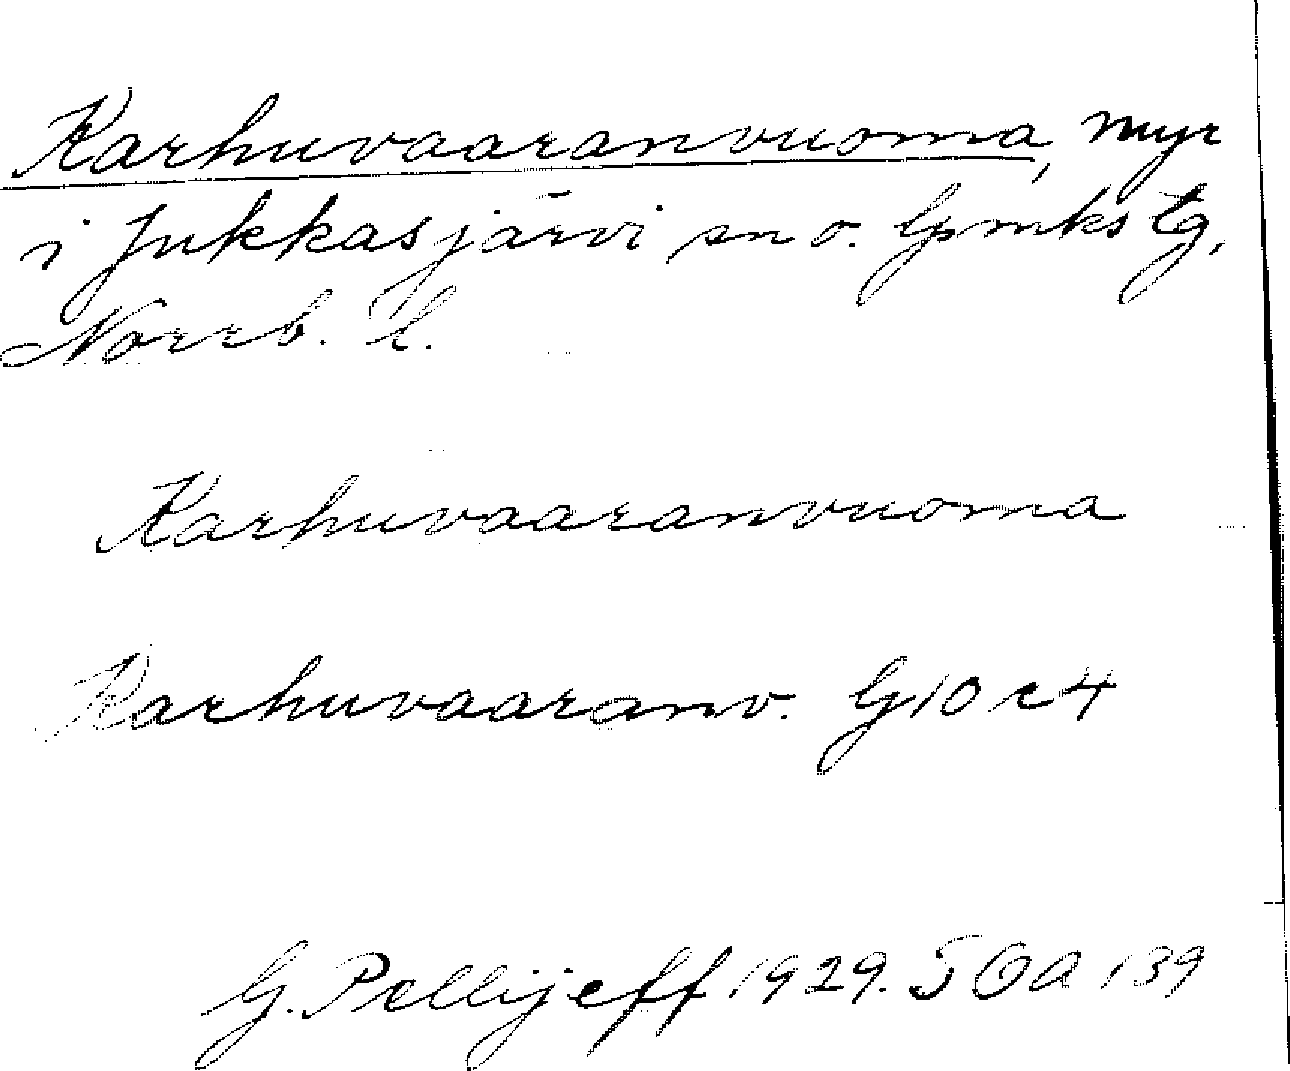 Karhuvaaranvuoma, myr
i Jukkasjärvi sn o. Gpmks tg,
Norrb. l.
Karhuvaaranvuoma
Karhuvaaranv. G10c4
G. Pellijeff 1929. SOA 139